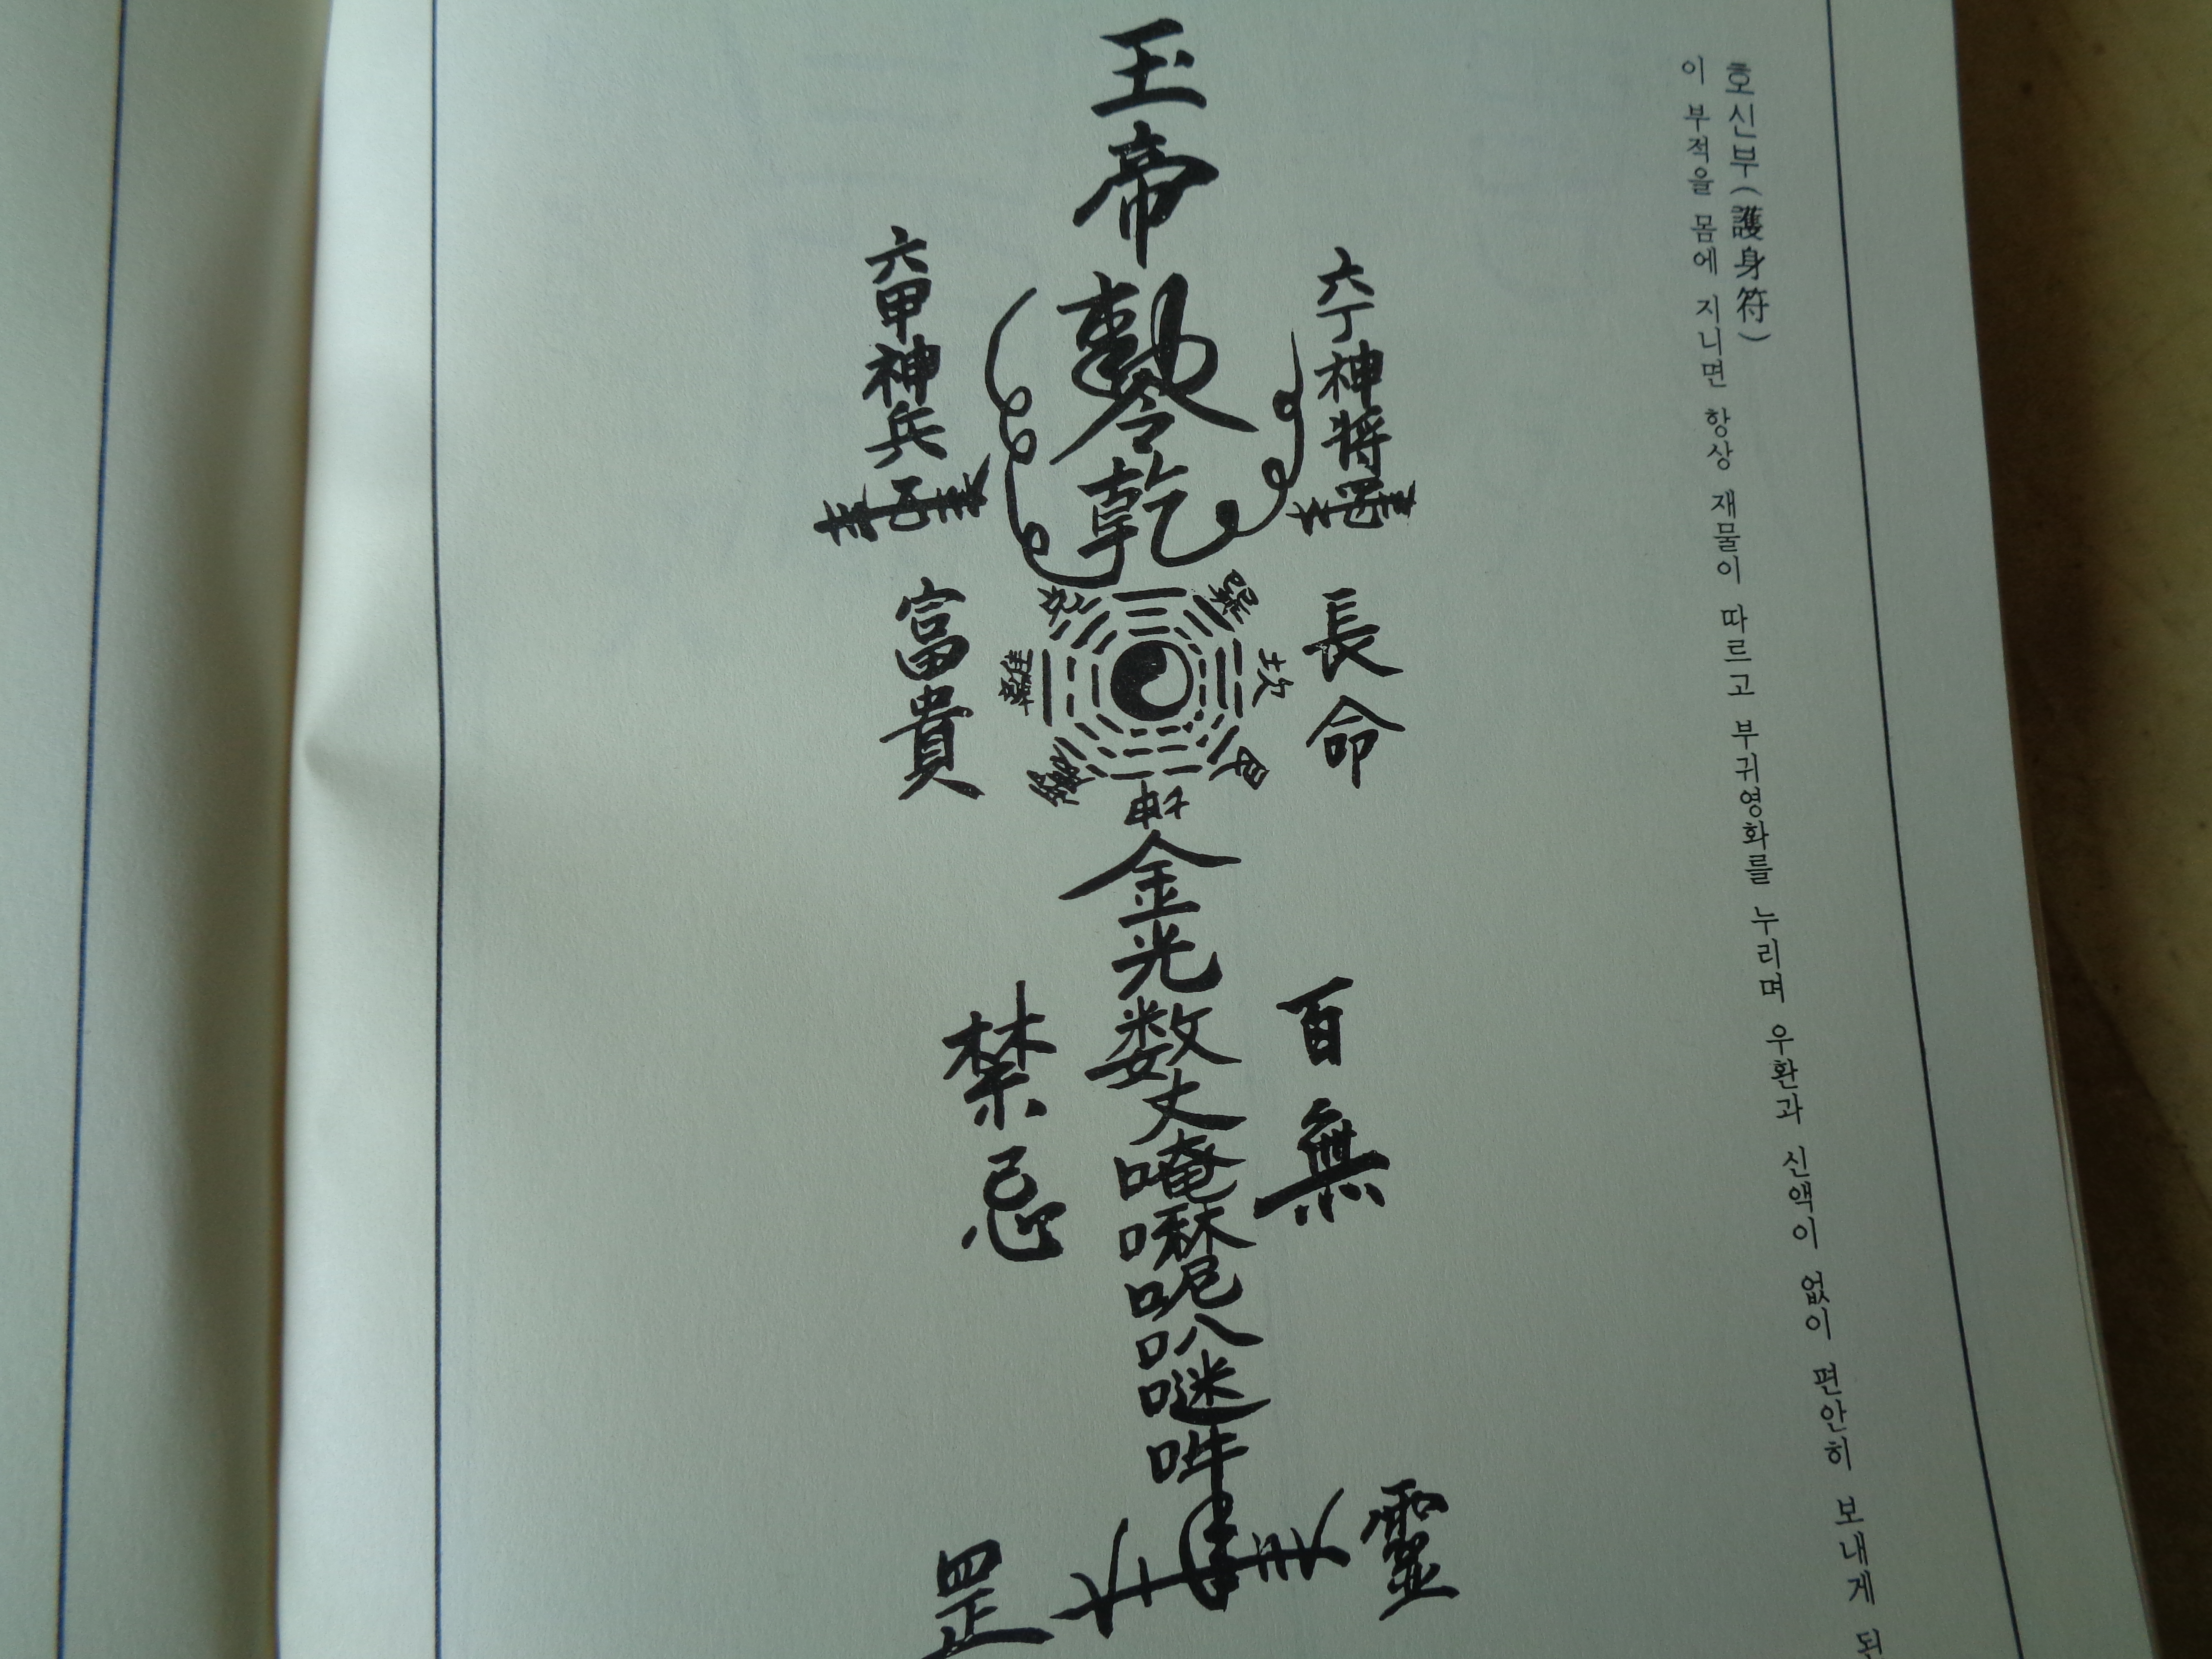 호신부(護身符)
이 부적을 몸에 지니면 항상 재물이 따르고 부귀영화를 누리며 우환과 신액이 없이 편안히 보내게 된
六丁神將
長命
百無
靈
玉帝勅令乾
金光数丈唵嚤呢叭𠺗吽
六甲神兵
富貴
禁忌
罡
巽
坎
艮
坤